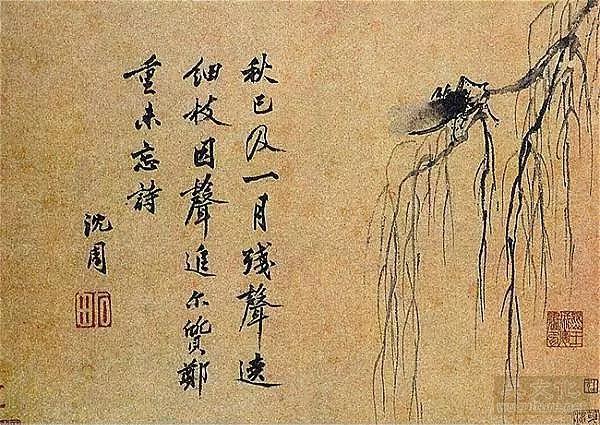 秋已及一月殘聲遶
細枝因聲追尔質鄭
重未忘詩
沈周